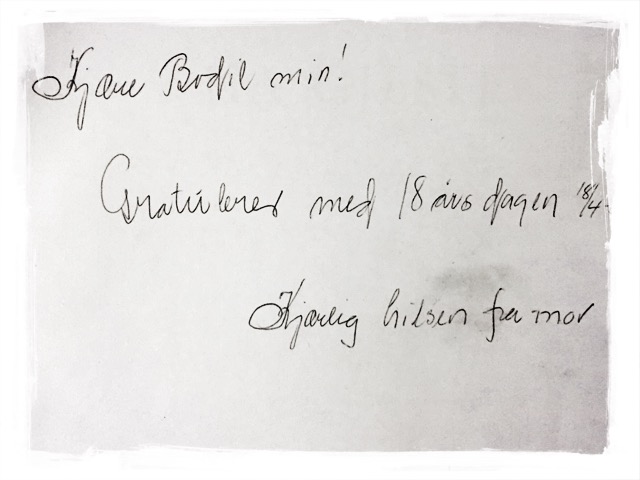 Kjære Bodil min!
Gratulerer med 18 års dagen 18/4.
Kjærlig hilsen fra mor